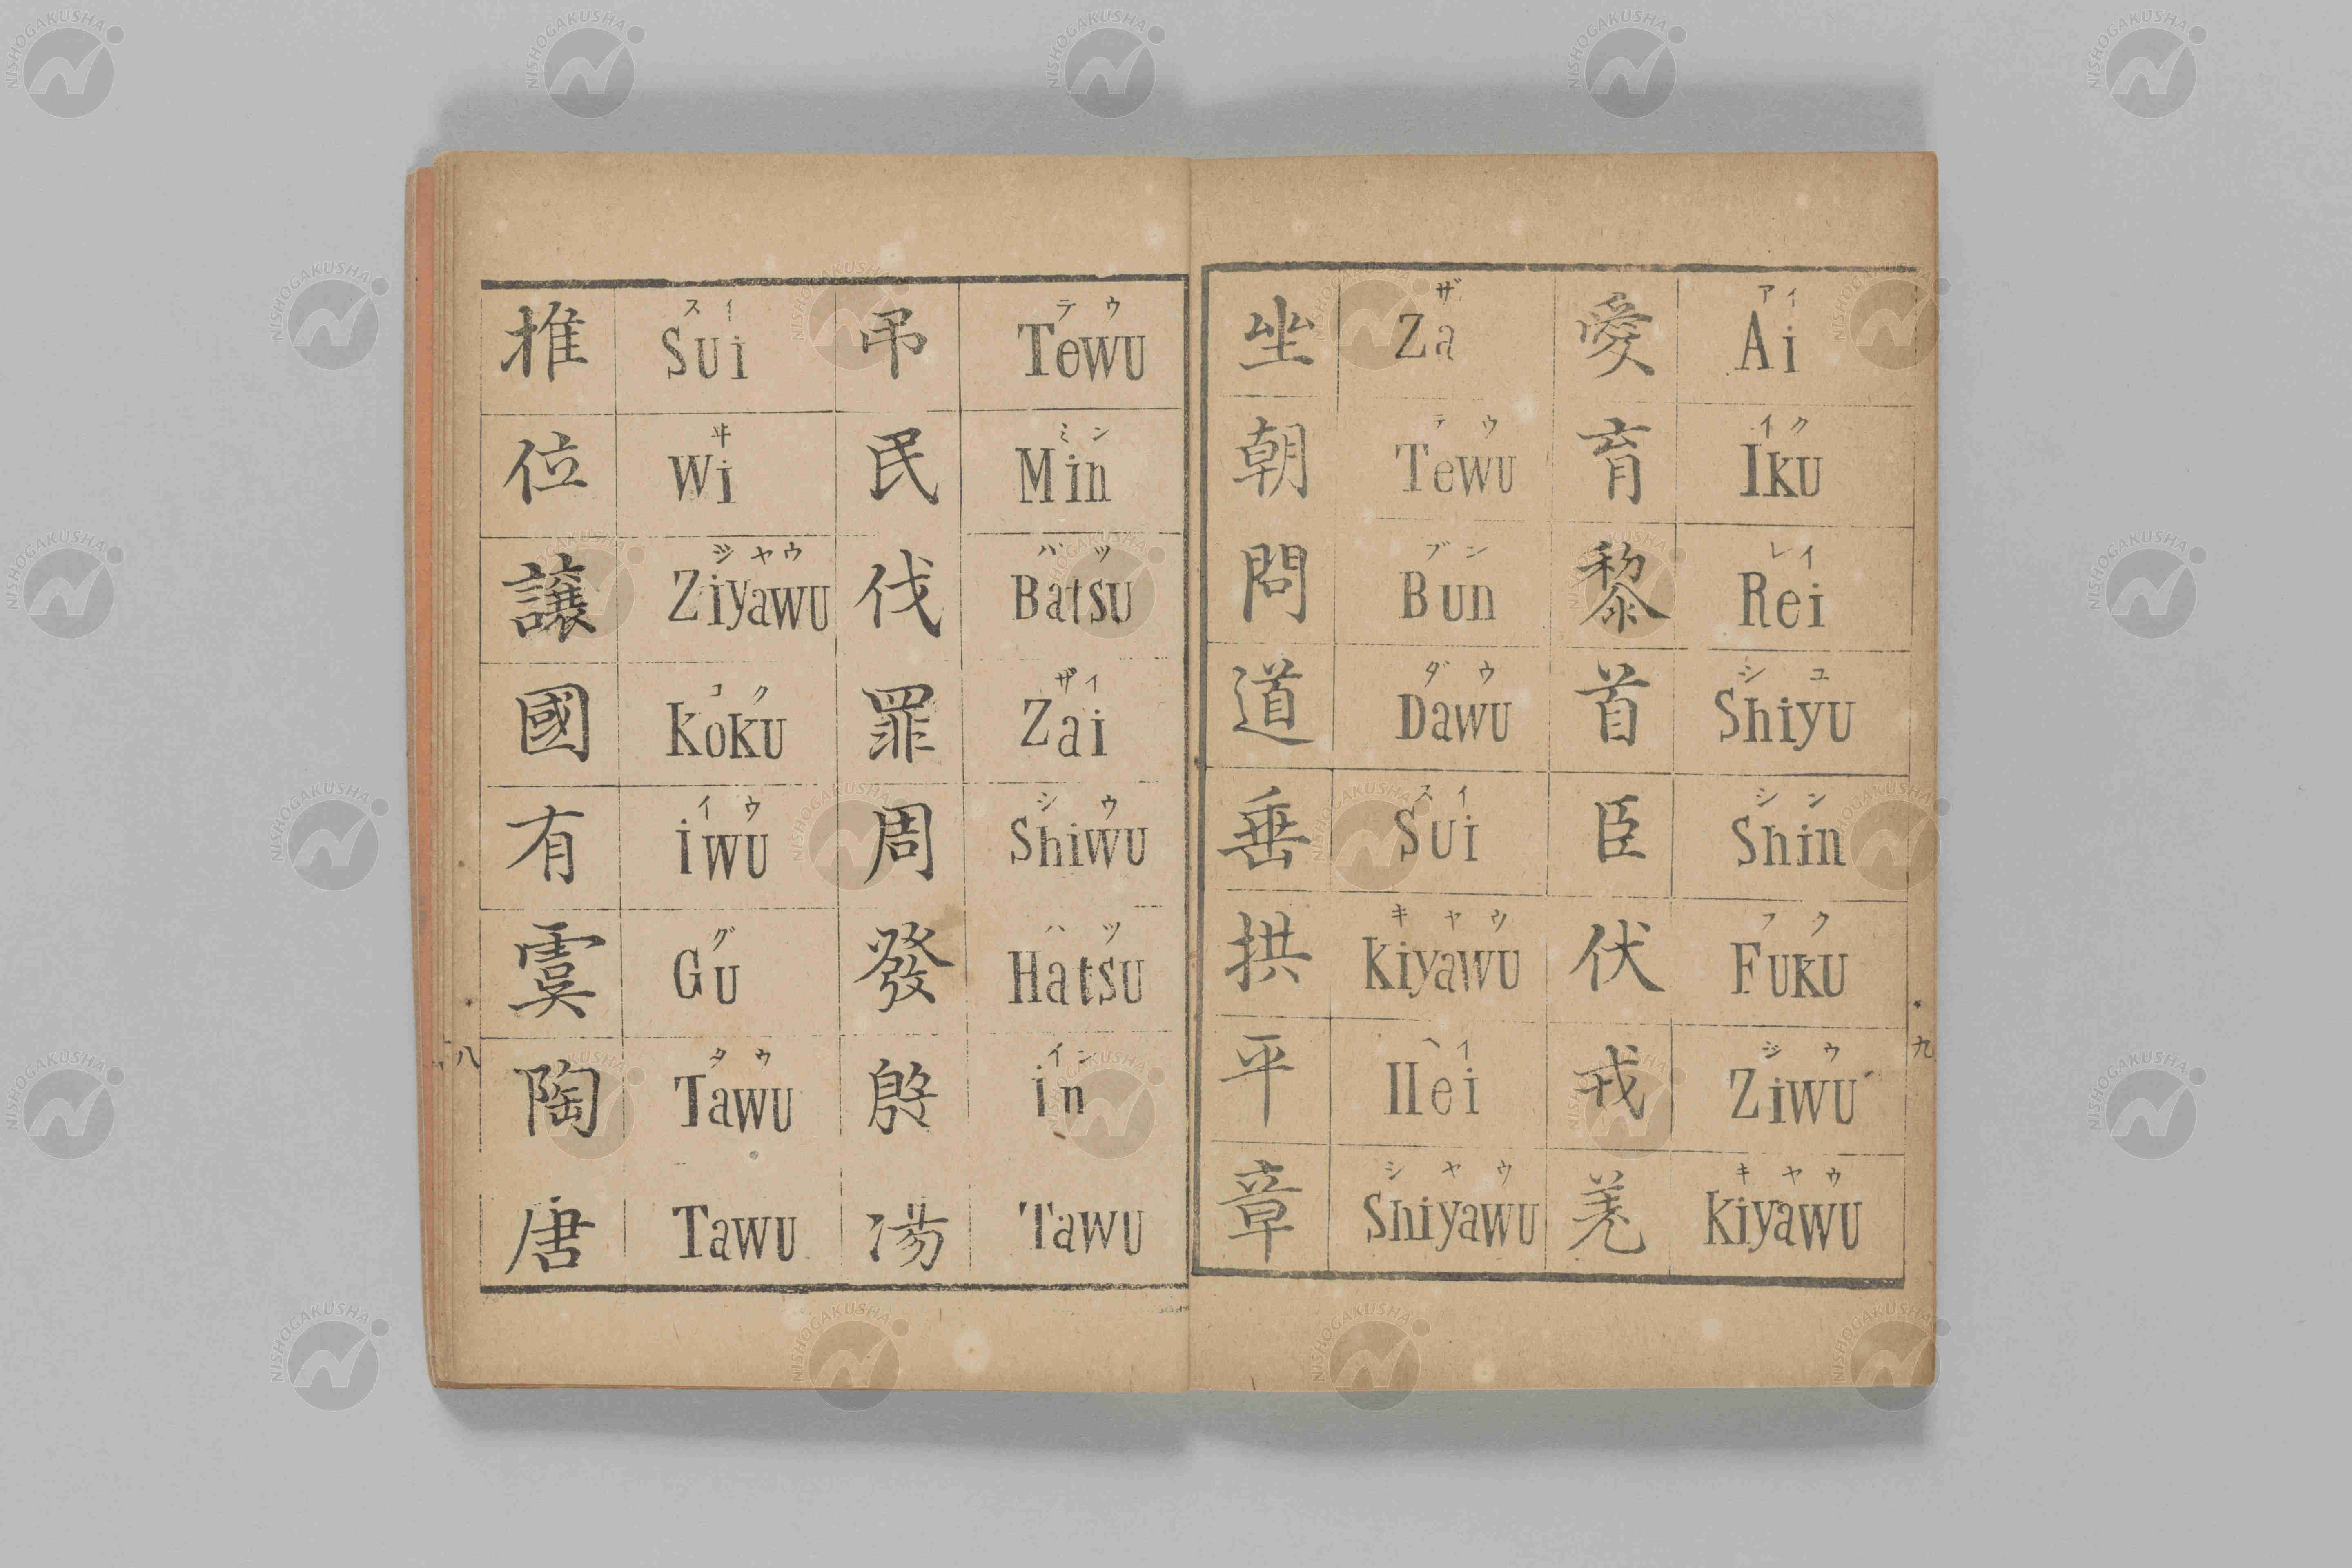 推
スイ
Sui
位
ヰ
Wi
讓
ジヤウ
Ziyawu
國
コク
Koku
有
イウ
iwu
虞
グ
Gu
陶
タウ
Tawu
唐
Tawu
吊
テウ
Tewu
民
ミン
Min
伐
バツ
Batsu
罪
ザイ
Zai
周
シウ
Shiwu
發
ハツ
Hatsu
殷
イン
in
湯
Tawu
八
坐
ザ
Za
朝
テウ
Tewu
問
ブン
Bun
道
ダウ
Dawu
垂
スイ
Sui
拱
キヤウ
Kiyawu
平
ヘイ
Hei
章
シヤウ
Shiyawu
愛
アイ
Ai
育
イク
Iku
黎
レイ
Rei
首
シユ
Shiyu
臣
シン
Shin
伏
フク
Fuku
戎
ジウ
Ziwu
羌
キヤウ
Kiyawu
九
NISHOGAKUSHA